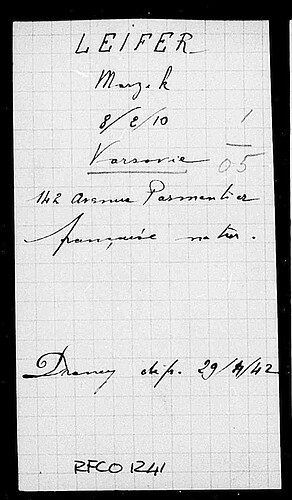 LEIFER
8/2/10
1
Varsovie
05
142 Avenue Parmentier
française natur.
Drancy dép. 29/4/42
RFCO 1241